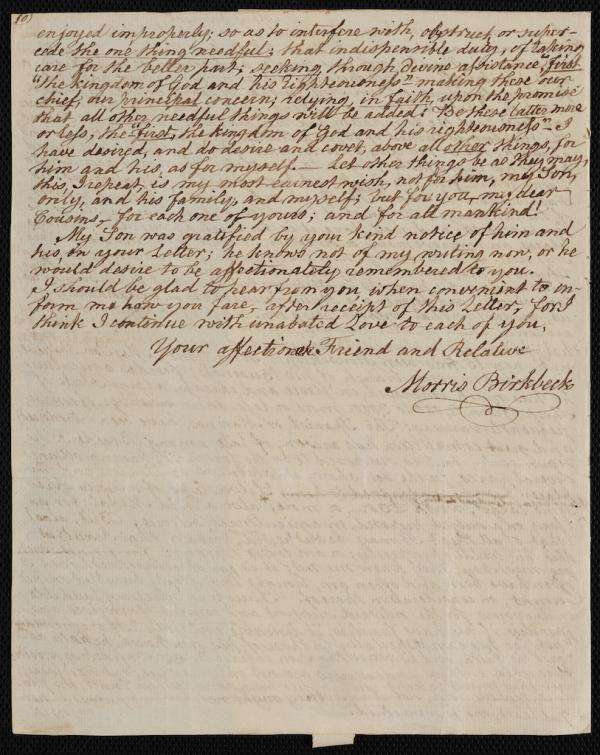 10)
enjoyed improperly; so as to interfere with, obstruct or super-
cede the one thing needful; that indispensible duty, of taking
care for the better part; seeking, through divine assistance, first
"the kingdom of God and his righteousness" making these our
chief, our principal concern; relying, in faith, upon the promise
that all other needful things will be added: Be these latter more
or less, the "first, the kingdom of God and his righteousness" I
have desired, and do desire and covet, above all other things, for
him and his, as for myself. — Let other things be as they may,
this, I repeat, is my most earnest wish, not for him, my Son,
only, and his family, and myself; but for you, my dear
Cousins, for each one of yours; and for all mankind!
My Son was gratified by your kind notice of him and
his, in your Letter; he knows not of my writing now, or he
would desire to be affectionately remembered to you.
I should be glad to hear from you when convenient to in-
form me how you fare, after receipt of this Letter, for I
think I continue with unabated Love to each of you,
Your affectionate Friend and Relative
Morris Birkbeck